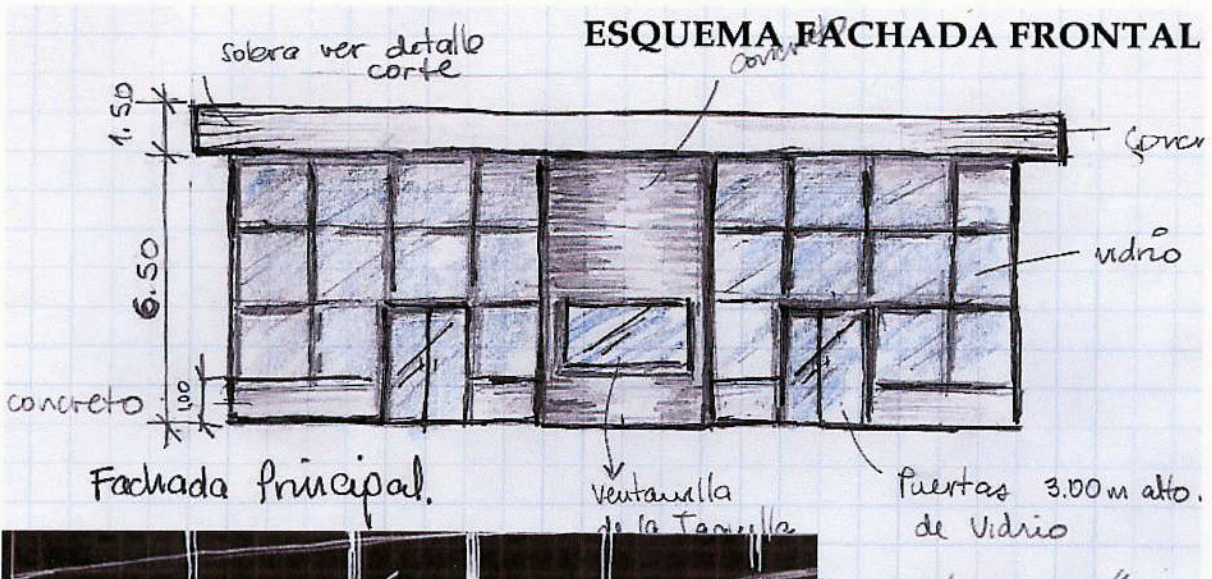 ESQUEMA FACHADA FRONTAL
solera ver detalle
corte
concreto
1.50
6.50
1.00
vidrio
concreto
Fachada Principal.
ventanilla
de la Taquilla
Puertas 3.00m alto.
de Vidrio